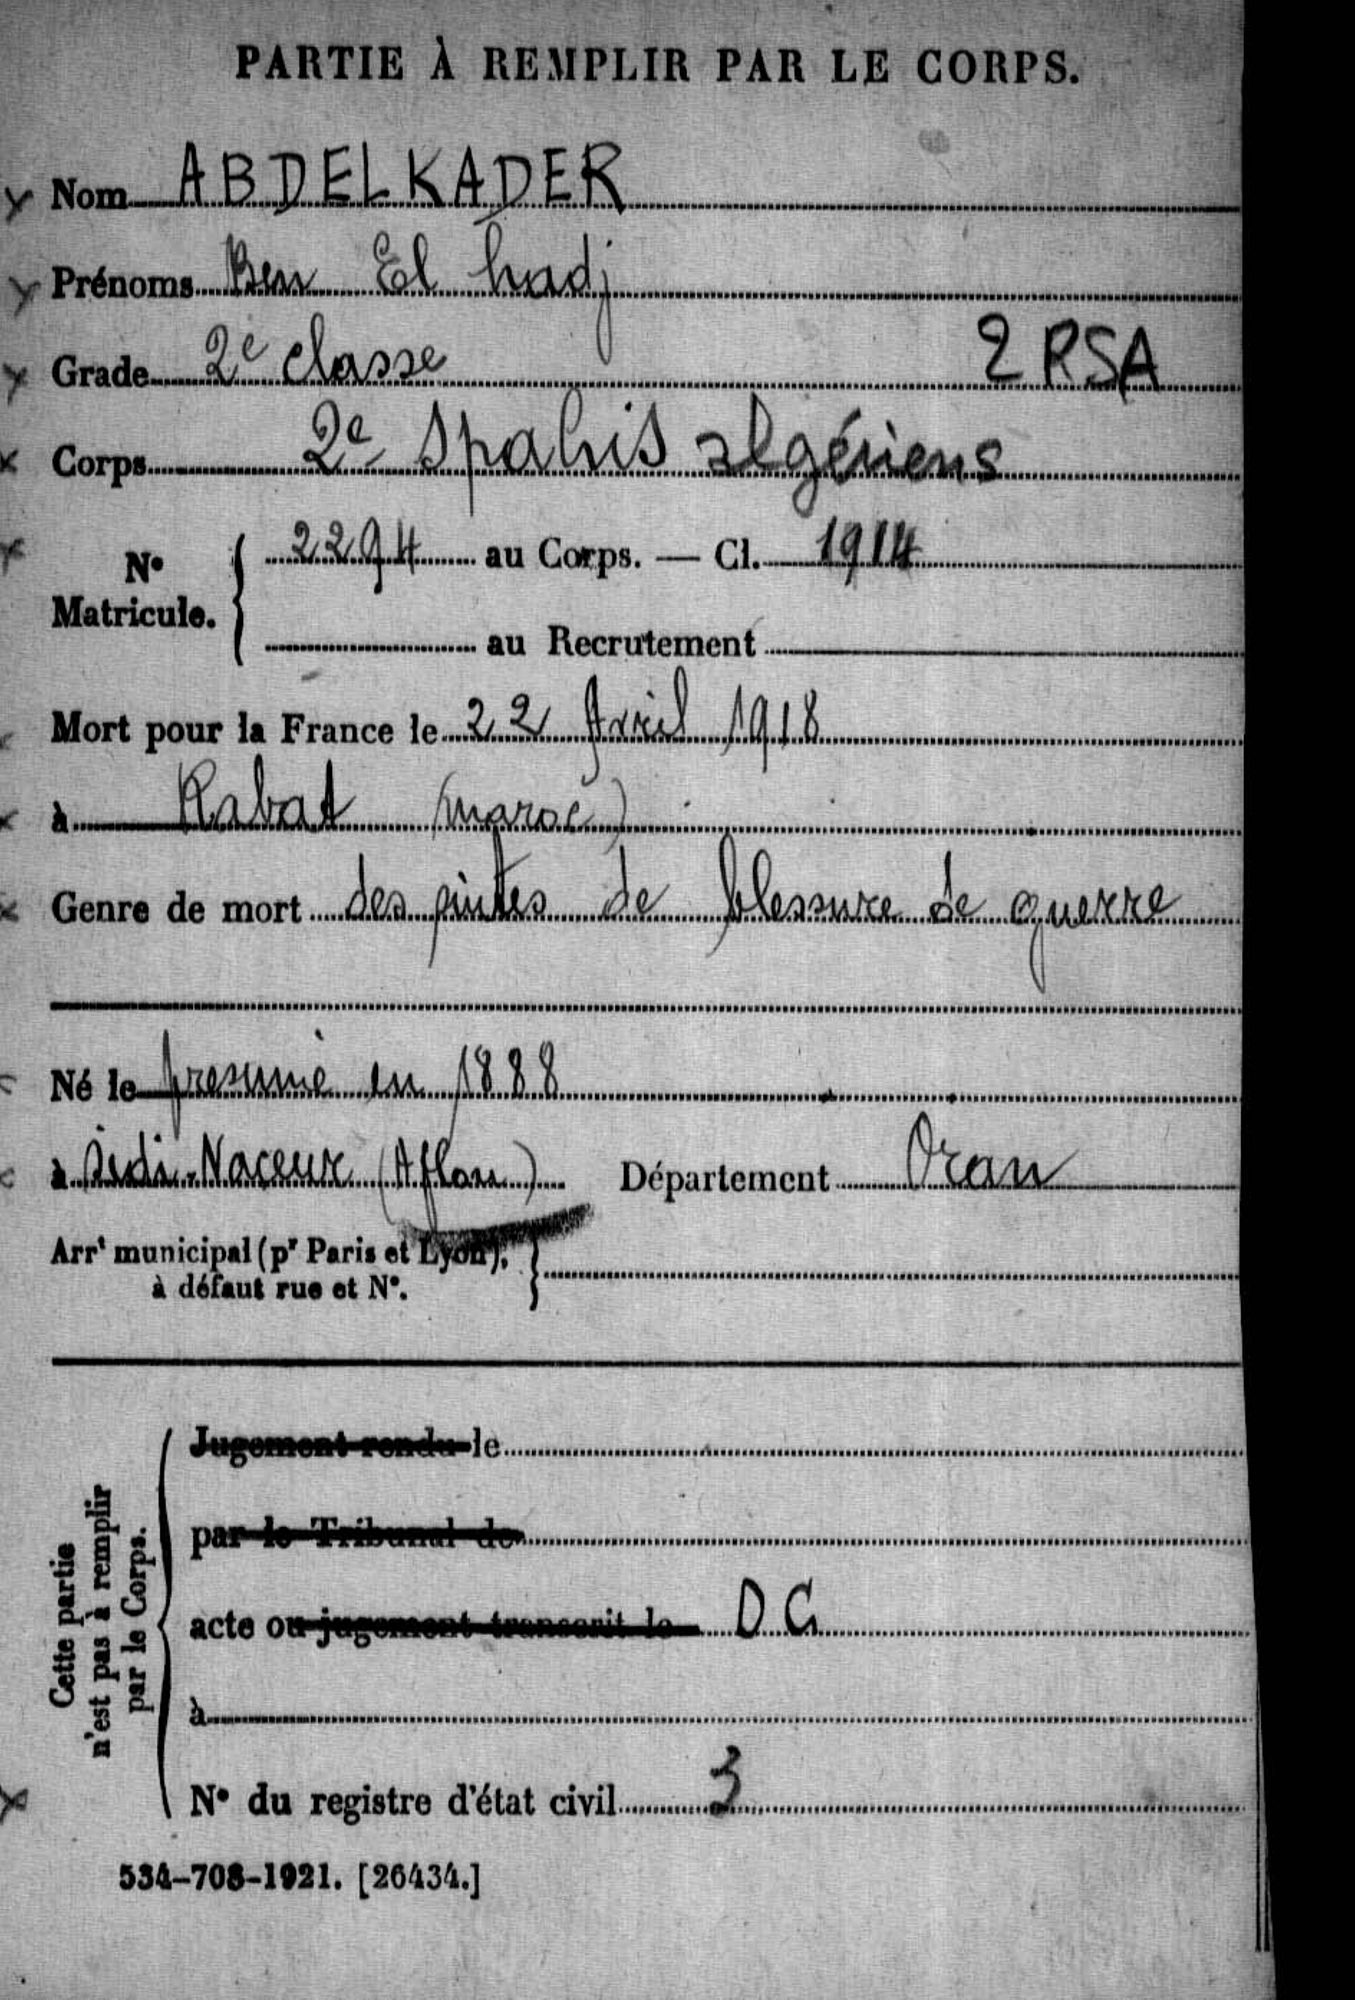 PARTIE À REMPLIR PAR LE CORPS.
Nom ABDELKADER
Prénoms Ben El hadj
Grade 2e classe 2 RSA
Corps 2e Spahis algériens
No Matricule. 2294 au Corps. — Cl. 1914
au Recrutement
Mort pour la France le 22 Avril 1918
à Rabat (maroc)
Genre de mort des suites de blessure de guerre
Né le presumé en 1888
à Sidi-Naceur (Aflou) Département Oran
Arrt municipal (pr Paris et Lyon),
à défaut rue et No.
Cette partie
n'est pas à remplir
par le Corps.
Jugement rendu le
par le Tribunal de
acte ou jugement transcrit le DG
à
No du registre d'état civil 3
534-708-1921. [26434.]